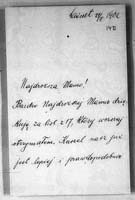 140
Najdroższa Mamo!
Bardzo Najdroższej Mamie dzię-
kuję za list z 17, który wczoraj
otrzymałem. Kaszel nasz już
jest lepiej i prawdopodobnie